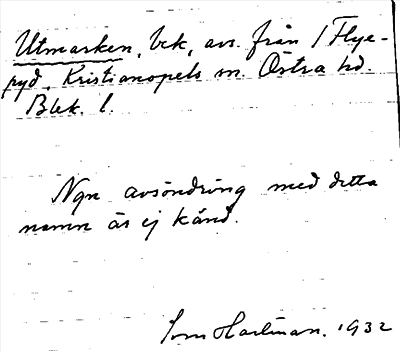 Utmarken, bek, avs. från 1 Flye-
ryd. Kristianopels sn. Östra hd.
Blek. l.
Ngn avsöndring med detta
namn är ej känd.
Hartman. 1932